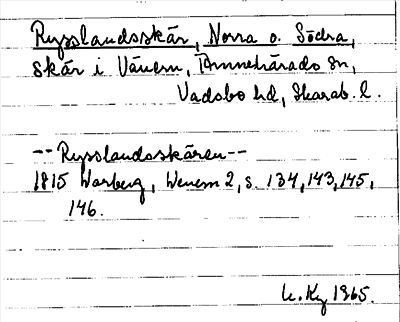 Rysslandsskär, Norra o. Södra,
skär i Vänern, Amnehärads sn,
Vadsbo hd, Skarab. l.
-- Rysslandsskären --
1815 Warberg, Wenern 2, s. 134, 143, 145,
146.
1965.